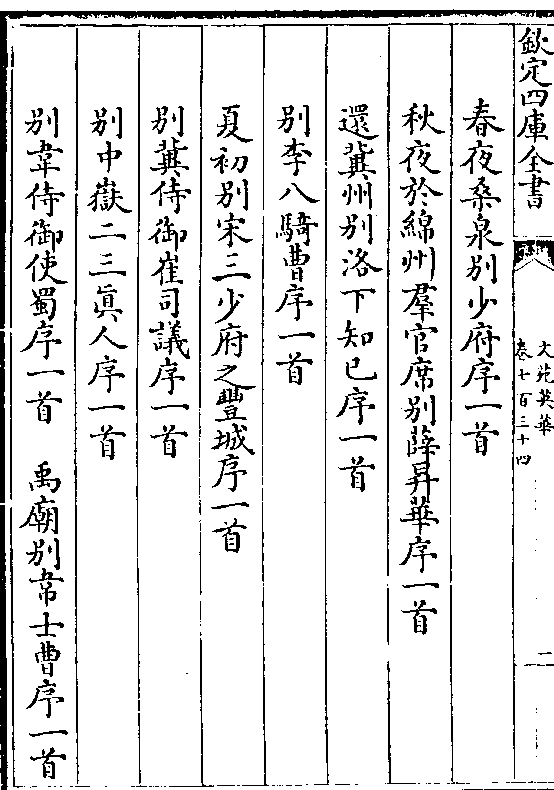 欽定四庫全書
文苑英華
卷七百三十四
二
春夜桑泉別少府序一首
秋夜於綿州羣官席別薛昇華序一首
還冀州別洛下知己序一首
別李八騎曹序一首
夏初別宋三少府之豐城序一首
別冀侍御崔司議序一首
別中嶽二三眞人序一首
別韋侍御使蜀序一首　禹廟別韋士曹序一首